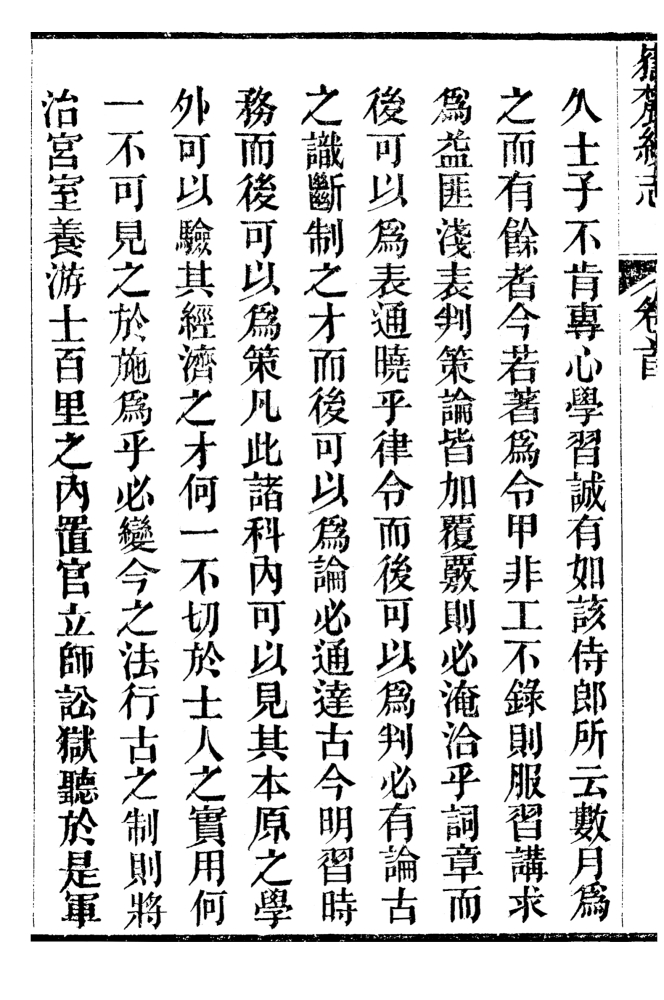 嶽麓續志 卷首
久士子不肯專心學習誠有如該侍郎所云數月爲
之而有餘者今若著爲令甲非工不錄則服習講求
爲益匪淺表判策論皆加覆覈則必淹洽乎詞章而
後可以爲表通曉乎律令而後可以爲判必有論古
之識斷制之才而後可以爲論必通達古今明習時
務而後可以爲策凡此諸科內可以見其本原之學
外可以驗其經濟之才何一不切於士人之實用何
一不可見之於施爲乎必變今之法行古之制則將
治宮室養游士百里之內置官立師訟獄聽於是軍